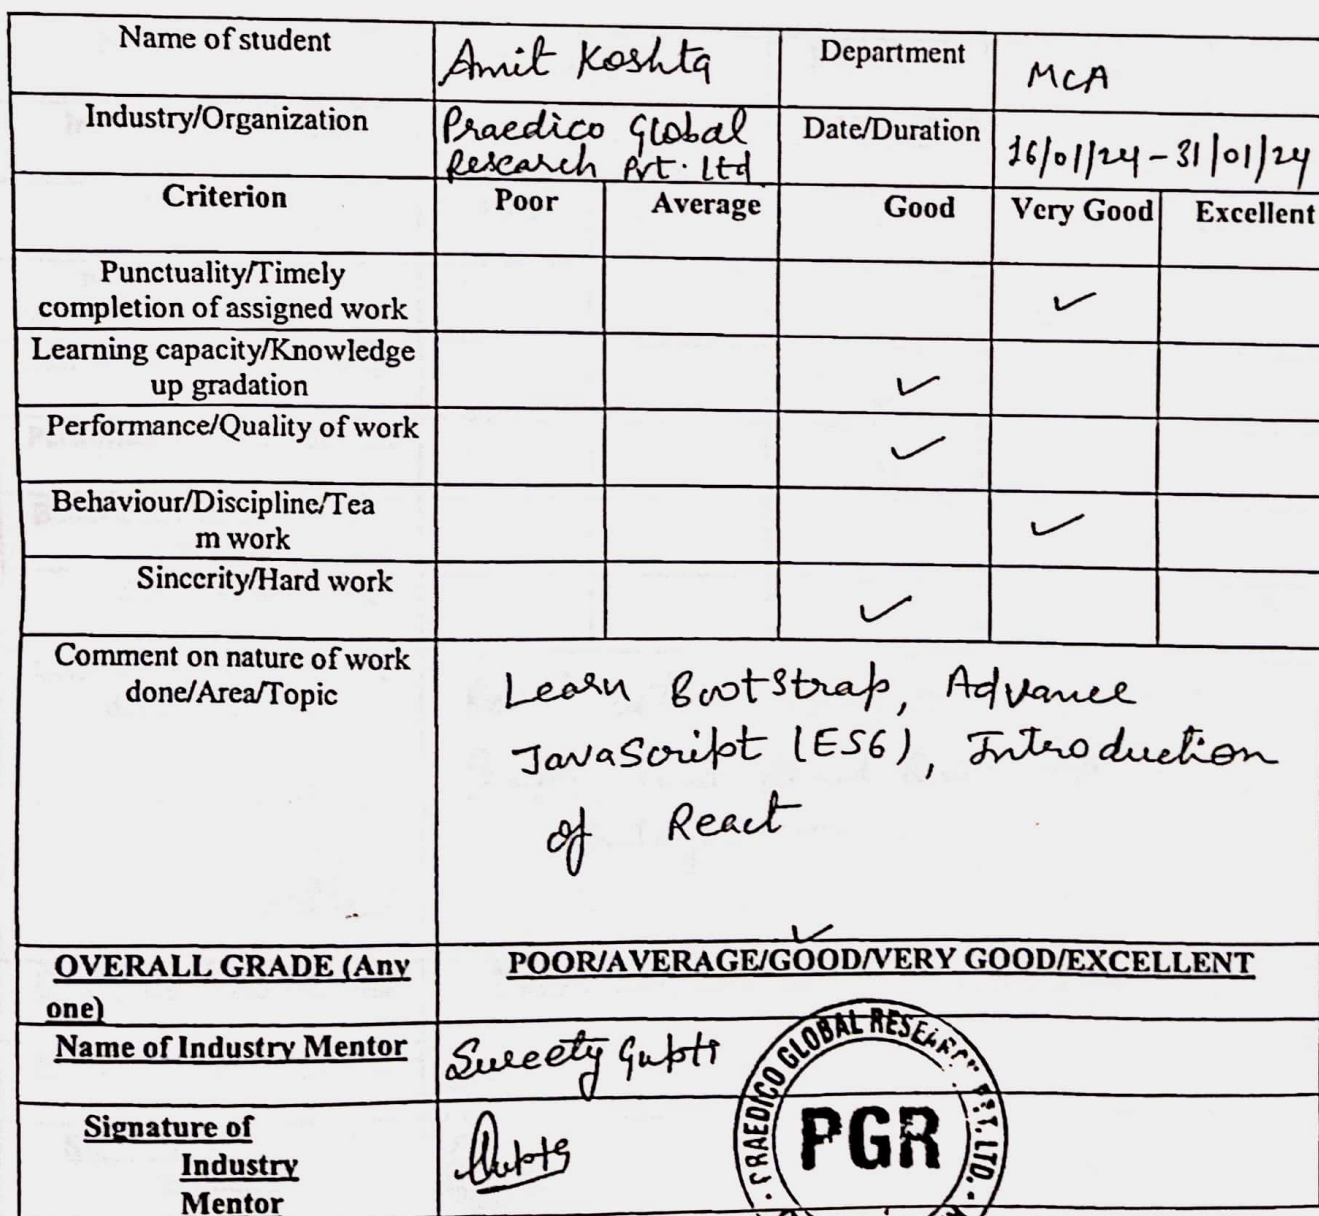 Name of student Amit Koshta Department MCA
Industry/Organization Praedico Global Date/Duration 16/01/24 - 31/01/24
Research Pvt. Ltd
Criterion Poor Average Good Very Good Excellent
Punctuality/Timely
completion of assigned work ✓
Learning capacity/Knowledge
up gradation ✓
Performance/Quality of work ✓
Behaviour/Discipline/Tea
m work ✓
Sincerity/Hard work ✓
Comment on nature of work
done/Area/Topic
Learn Bootstrap, Advance
JavaScript (ES6), Introduction
of React
✓
OVERALL GRADE (Any
one)
POOR/AVERAGE/GOOD/VERY GOOD/EXCELLENT
Name of Industry Mentor Sweety Gupta
Signature of
Industry
Mentor
Gupta
PRAEDICO GLOBAL RESEARCH PVT. LTD.
PGR